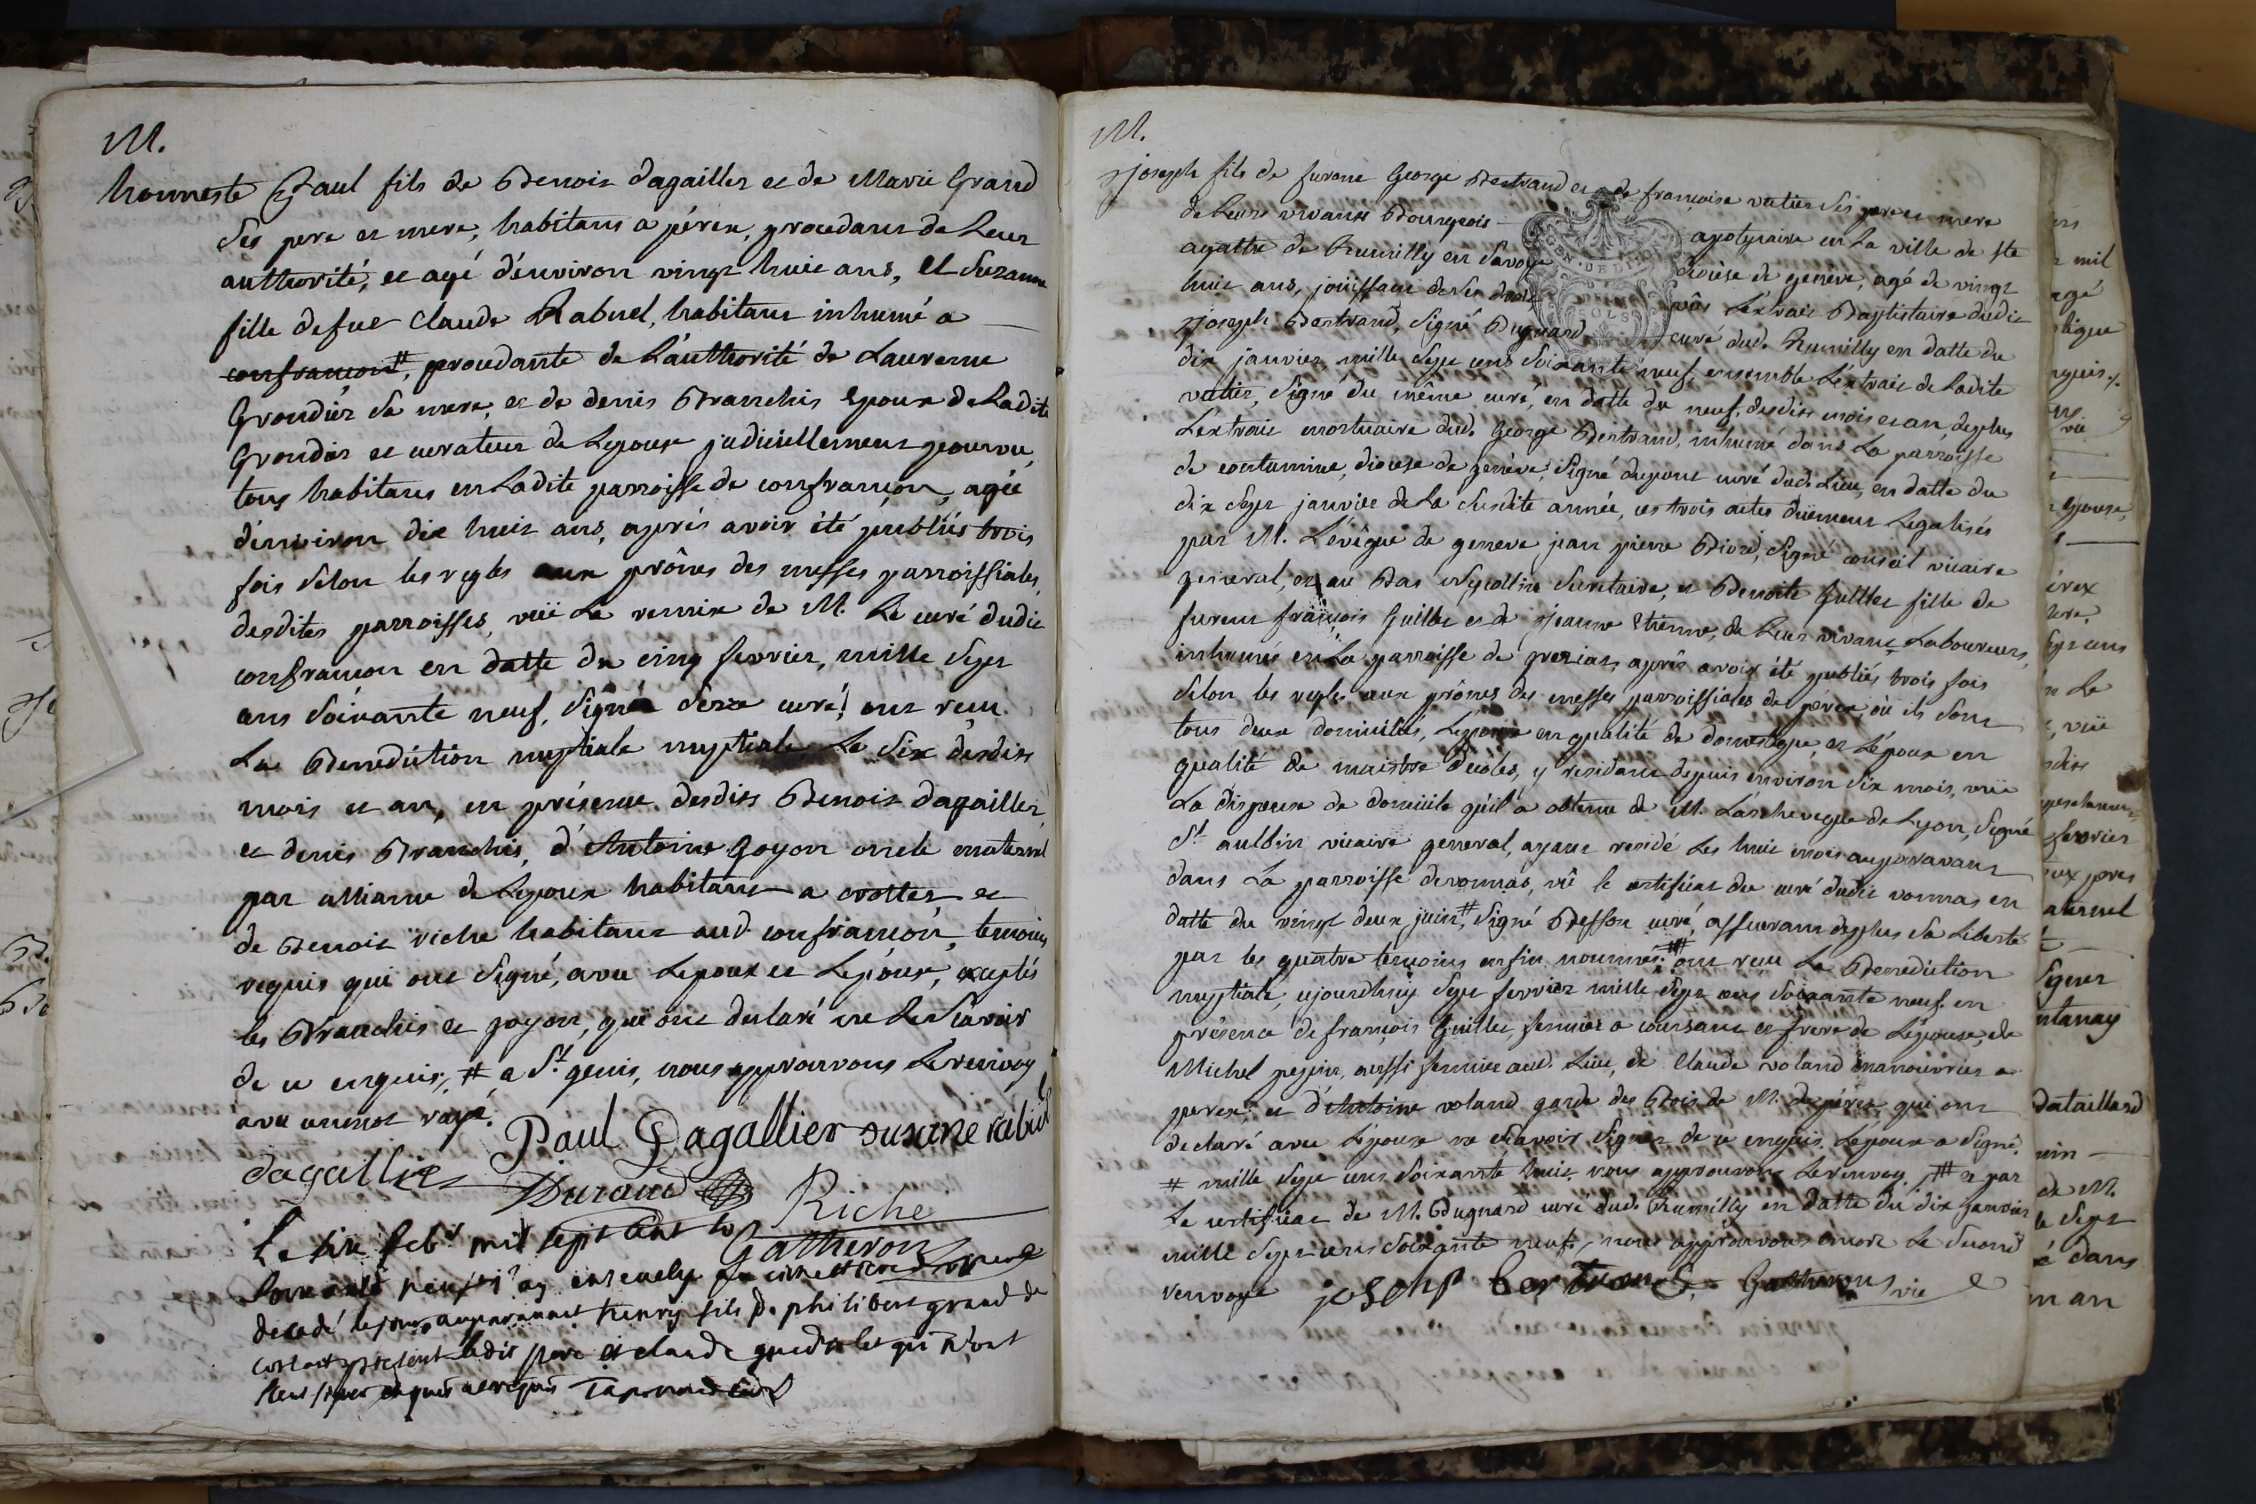 M.
honneste Paul fils de Benoit dagaillier et de Marie Grand
ses pere et mere, habitans a pérex, procedans de Leur
authorité, et agé d'environ vingt huit ans, et Suzanne
fille de fut Claude Rabuel, habitant inhumé a
confrancon #, procedante de L'authorité de Laurence
Grondier sa mere, et de denis Branchis Epoux de Ladite
Grondier et curateur de Lepouse judiciellement pourvu
tous habitans en Ladite parroisse de confrançon, agée
d'environ dix huit ans, aprés avoir été publiés trois
fois selon les regles aux prônes des messes parroissiales
desdites parroisses, vüe La remise de M. Le curé dudit
confrancon en datte du cinq fevrier, mille sept
cens soixante neuf, signé curé, ont reçu
La Benediction nuptiale nuptiale Le six desdits
mois et an, en présence desdits Benoit dagaillier,
et denis Branchis, d'Antoine Goyon oncle maternel
par alliance de Lepoux habitant a crottet et
de Benoit riche habitant aud. confrancon, temoins
requis qui ont signé, avec Lepoux et Lepouse, exceptés
les Branchis et goyon, qui ont declaré ne Le scavoir
de ce enquis, # a St. genis, nous approuvons Le renvoy
avec un mot rayé.
Paul Dagallier susane rabuel
dagallier
Durand Riche
Le six febr. mil sept cent
Gatheron
soixante neuf j'ay enseveli au cimetiere
decedé le jour auparavant henry fils de philibert grand de
present ledit pere et claude qui n'ont
sceu signer enquis et requis
M.
joseph fils de furent George Bertrand et de françoise vutier ses pere et mere
de Leurs vivants Bourgeois apotyraire en La ville de ste
agathe de Rumilly en Savoye diocèse de genève, agé de vingt
huit ans, jouissant de ses droits vûs L'extrait Baptistaire dudit
joseph Bertrand, signé Bugnard curé dud. Rumilly en datte du
dix janvier mille sept cens soixante neuf ensemble L'extrait de Ladite
vutier, signé du même curé, en datte du neuf desdits mois et an, de plus
L'extrait mortuaire dud. George Bertrand, inhumé dans La parroisse
de contamine, diocese de genève, signé dupont curé dud. Lieu, en datte du
dix sept janvier de La susdite année, ces trois actes düement Legalisés
par M. L'évêque de geneve jean pierre Biord, signé conseil vicaire
general, et au Bas secretaire, et Benoite Guillet fille de
furent françois Guillet et de jeanne Etienne, de Leur vivant Laboureurs,
inhumés en La parroisse de grezias, aprés avoir été publiés trois fois
selon les regles aux prônes des messes parroissiales de pérex, où ils sont
tous deux domiciliés, L'epouse en qualité de domestique, et L'époux en
qualité de maistre d'ecoles, y residant depuis environ six mois, vüe
La dispense de domicile qu'il a obtenu de M. L'archeveque de Lyon, signé
St. aulbin vicaire general, ayant residé Les huit mois auparavant
dans La parroisse de vonnas, vû le certificat du curé dudit vonnas en
datte du vingt deux juin, # signé Besson curé, assurant de plus sa Liberté
par les quatre temoins enfin nommés: ## ont reçu La Benediction
nuptiale, ujourdhuy sept fevrier mille sept cens soixante neuf en
présence de françois Guillet, fermier a coursant et frere de L'épouse, de
Michel pepin, aussi fermier aud. Lieu, de Claude voland manouvrier a
perex, et d'Antoine voland garde des Bois de M. de pérex, qui ont
declaré avec L'épouse ne sçavoir signer de ce enquis. L'époux a signé.
# mille sept cens soixante huit. nous approuvons Le renvoy, ## et par
Le certificat de M. Bugnard curé dud. Rumilly en datte du dix janvier
mille sept cens soixante neuf, nous approuvons encore Le second
renvoye joseph bertrand. Gatheron vic